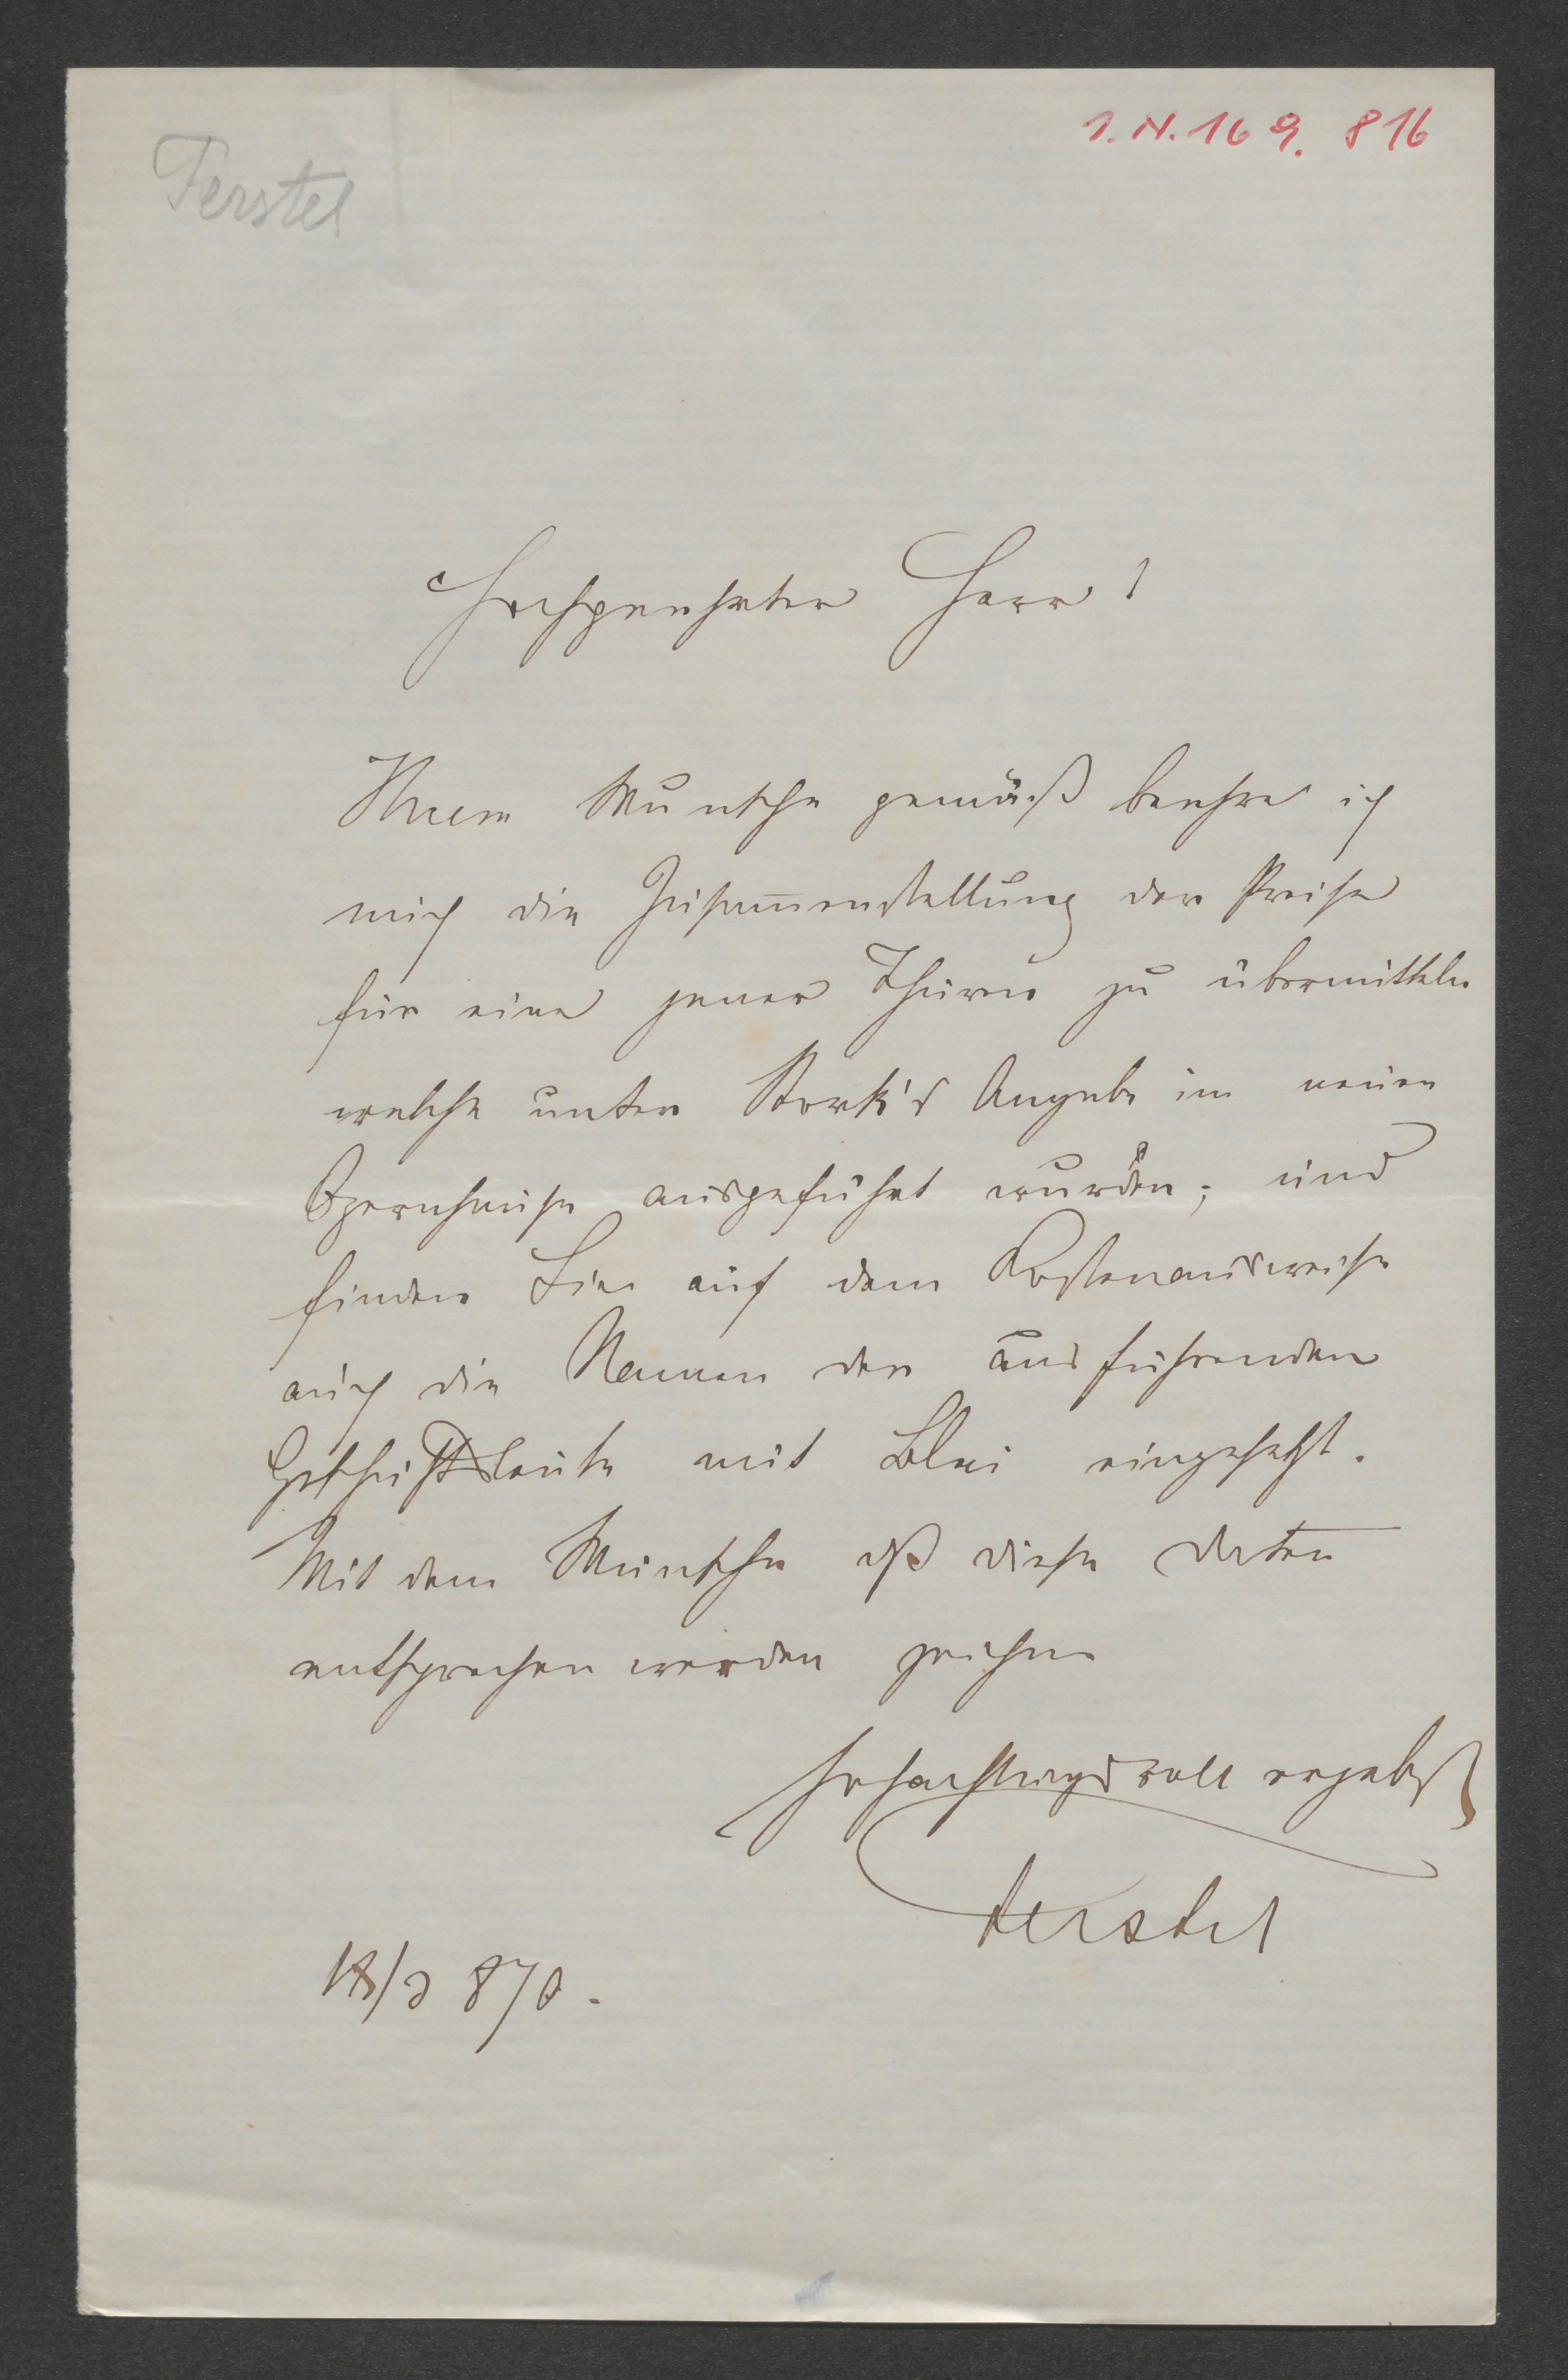 Ferstel
I.N. 169.816
Hochgeehrter Herr!
Ihrem Wunsche gemäß beehre ich
mich die Zusam̅enstellung der Preise
für eine jener Thüren zu übermitteln
welche unter Stork's Angabe im neuen
Opernhause ausgeführt wurden; und
finden Sie auf dem Kostenausweise
auch die Namen der ausführenden
Geschäftsleute mit Blei eingesetzt.
Mit dem Wunsche daß diese Daten
entsprechen werden zeichne
Hochachtungsvoll ergebst
Ferstel
18/3 870.